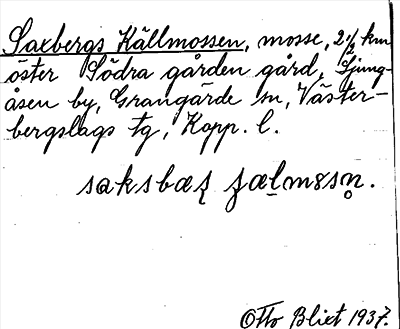 Saxbergs Källmossen, mosse, 2 ½ km
öster Södra gården gård, Ljung-
åsen by, Grangärde sn, Väster-
bergslags tg, Kopp. l.
saksbæʂ
Otto Blixt 1937.